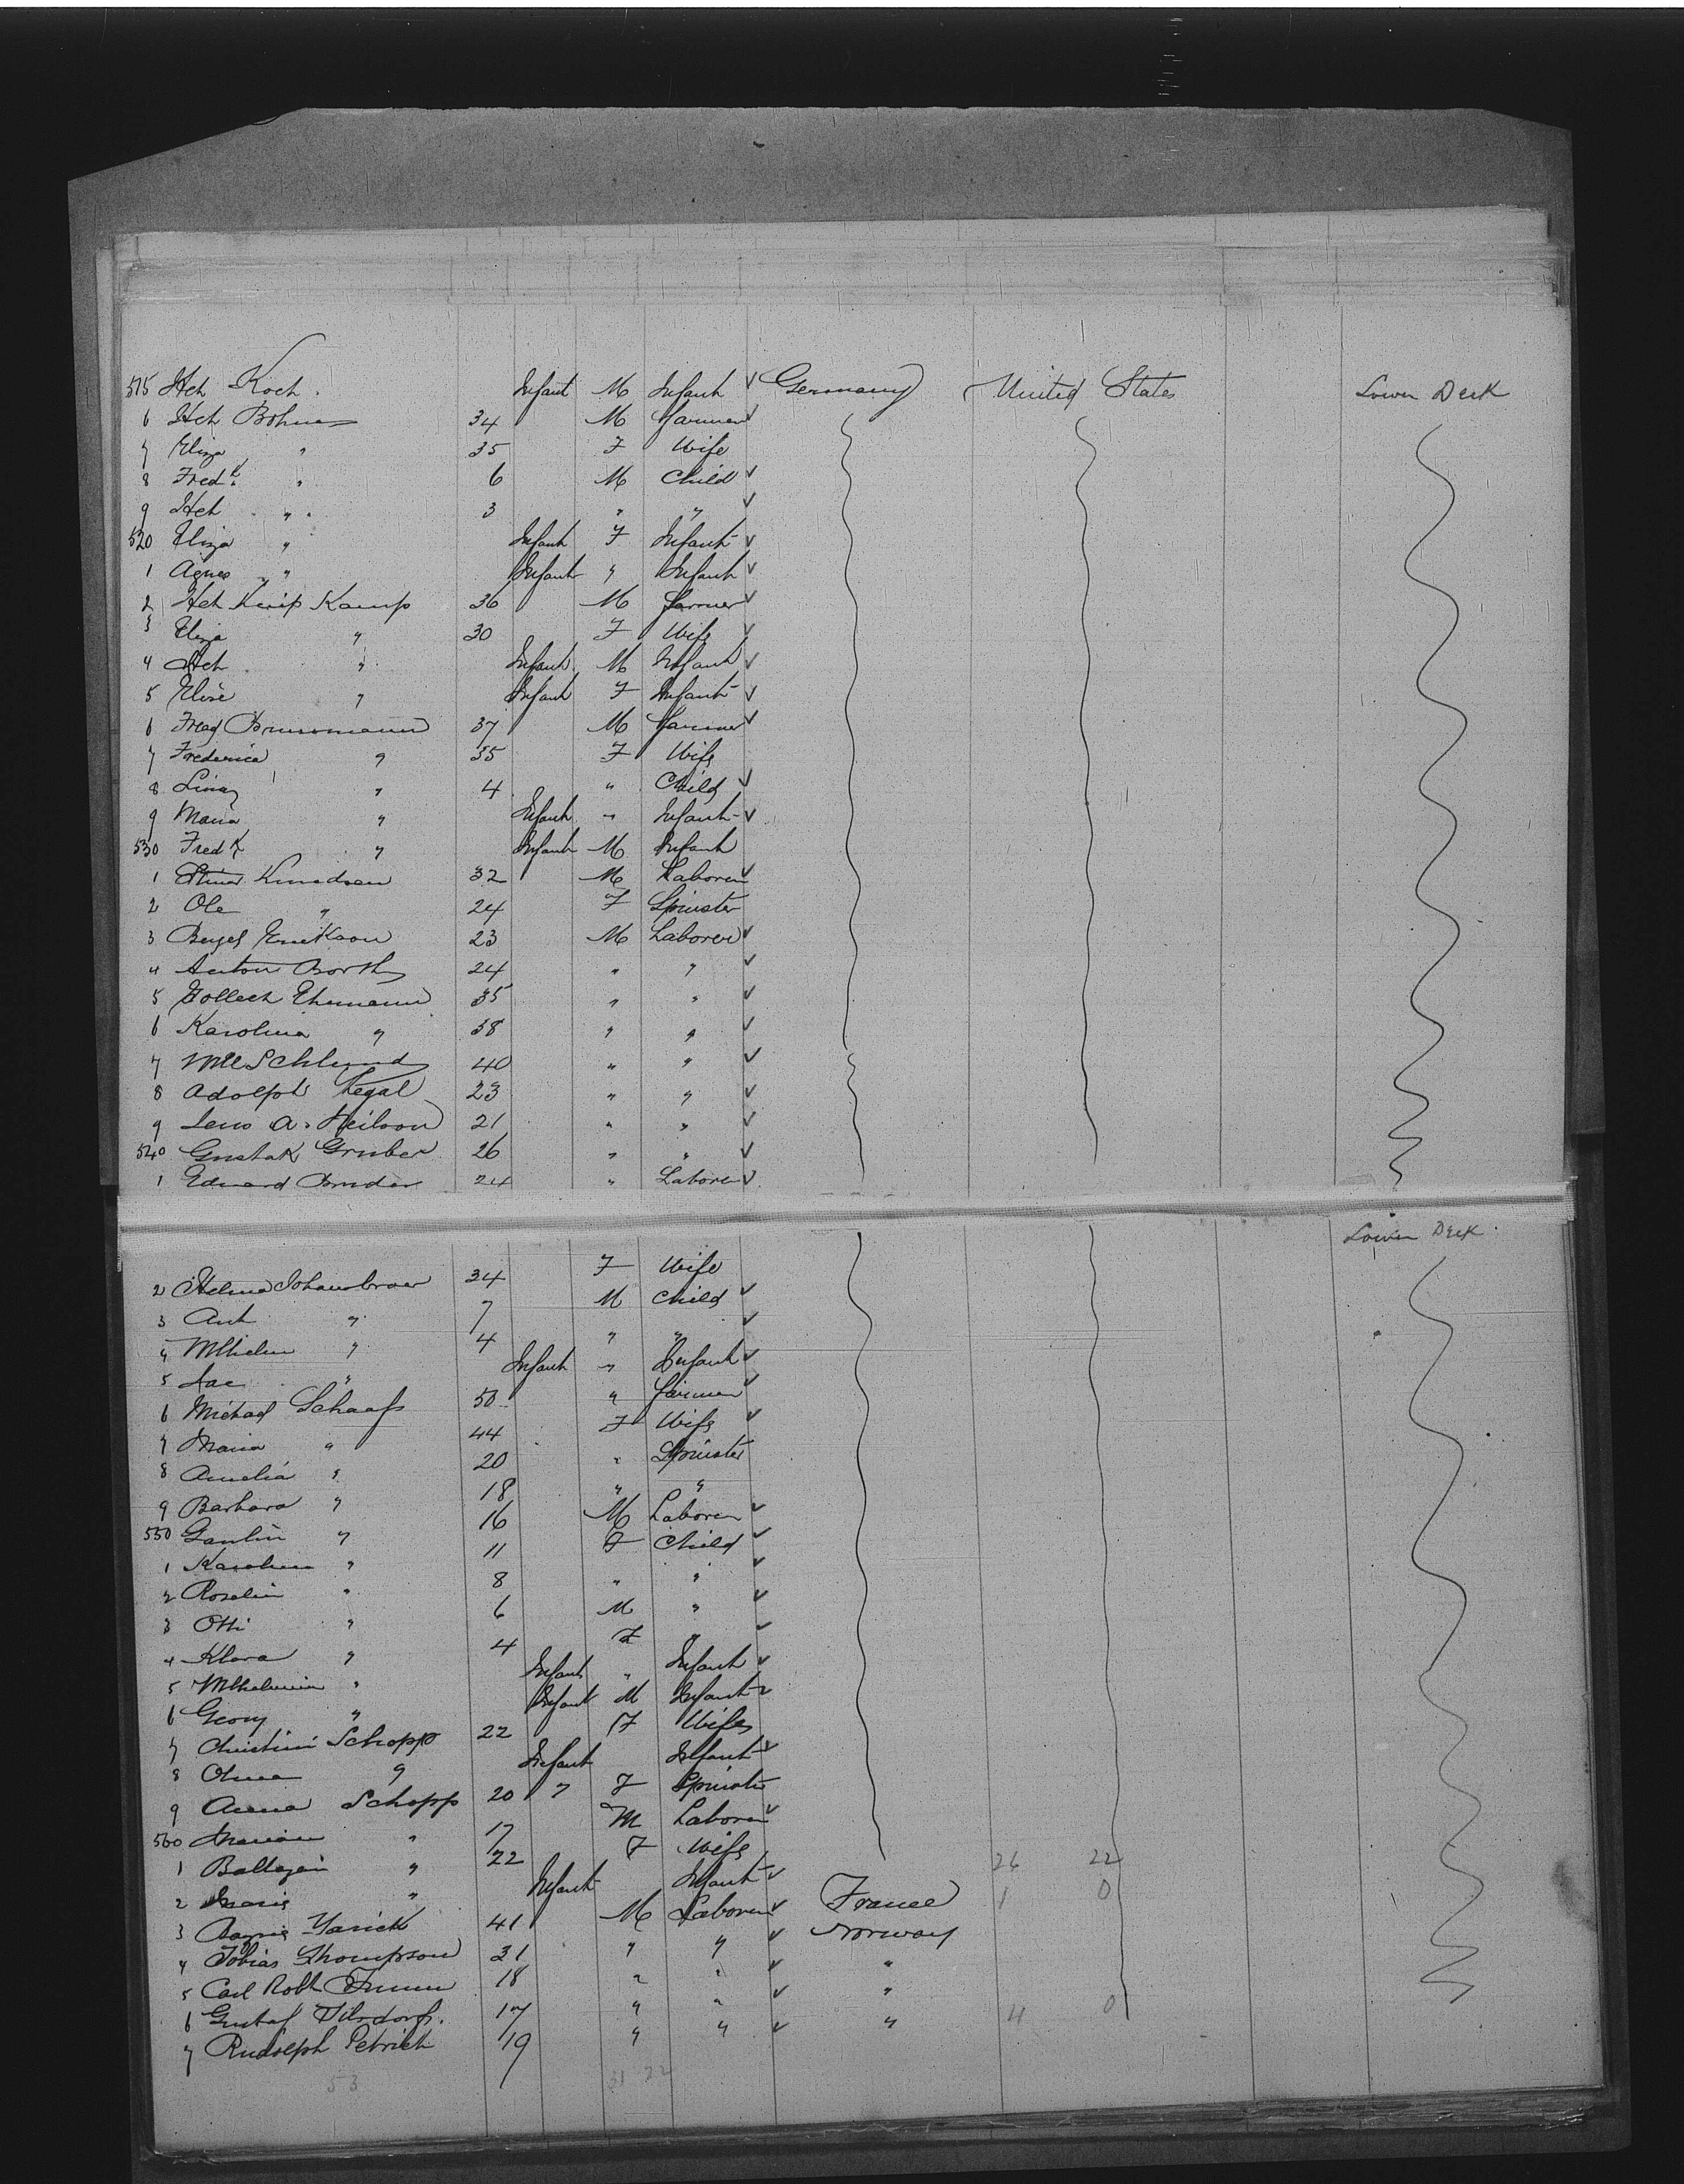 515 Hch Koch. Infant M Infant ✓ Germany United States Lower Deck
6 Hch Bohmer 34 M Farmer ✓
7 Eliza " 35 F Wife
8 Fredk. " 6 M Child ✓
9 Hch " 3 " " ✓
520 Eliza " Infant F Infant ✓
1 Agnes " Infant " Infant ✓
2 Hch Kamp 36 M Farmer ✓
3 Eliza " 30 F Wife ✓
4 Hch " Infant M Infant ✓
5 Elise " Infant F Infant ✓
6 Fred Brunsmann 37 M Farmer ✓
7 Frederica " 35 F Wife
8 Lina " 4 " Child ✓
9 Maria " Infant " Infant ✓
530 Fredk " Infant M Infant
1 Knudsen 32 M Laborer ✓
2 Ole " 24 F Spinster
3 Erickson 23 M Laborer ✓
4 Anton Borth 24 " " ✓
5 Ehmann 35 " " ✓
6 Karolina " 38 " " ✓
7 Schlund 40 " " ✓
8 Adolph Segal 23 " " ✓
9 Jens A. Neilson 21 " " ✓
540 Gustak Gruber 26 " " ✓
1 Edward Bruder 24 " Laborer ✓
Lower Deck
2 Helena 34 F Wife
3 Ant " 7 M Child ✓
4 Wlhelm " 4 " " ✓
5 Jac " Infant " Infant ✓
6 Michael Schaaf 50 " Farmer ✓
7 Maria " 44 F Wife ✓
8 Amelia " 20 " Spinster
9 Barbara " 18 " "
550 " 16 M Laborer ✓
1 Karolina " 11 F Child ✓
2 Rosalin " 8 " " ✓
3 Otti " 6 M " ✓
4 Klara " 4 F " ✓
5 Wlhelmina " Infant " Infant ✓
6 Georg " Infant M Infant ✓
7 Christini Schopp 22 F Wife
8 " Infant Infant ✓
9 Anna Schopp 20 " F Spinster
560 " 17 M Laborer ✓
1 " 22 F Wife 26 22
2 Marie " Infant Infant ✓
3 Yarick 41 M Laborer ✓ France 1 0
4 Tobias Thompson 31 " " ✓ Norway
5 Carl Robt 18 " " ✓ "
6 Gustaf 17 " " ✓ "
7 Rudolph Petrich 19 " " ✓ " 4 0
53 31 22